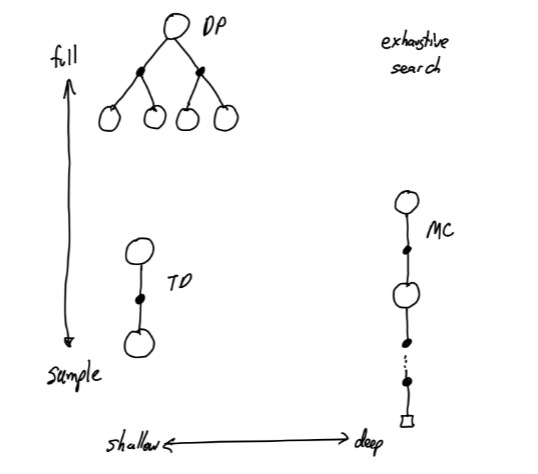 DP
full
exhaustive
search
MC
TD
sample
shallow
deep